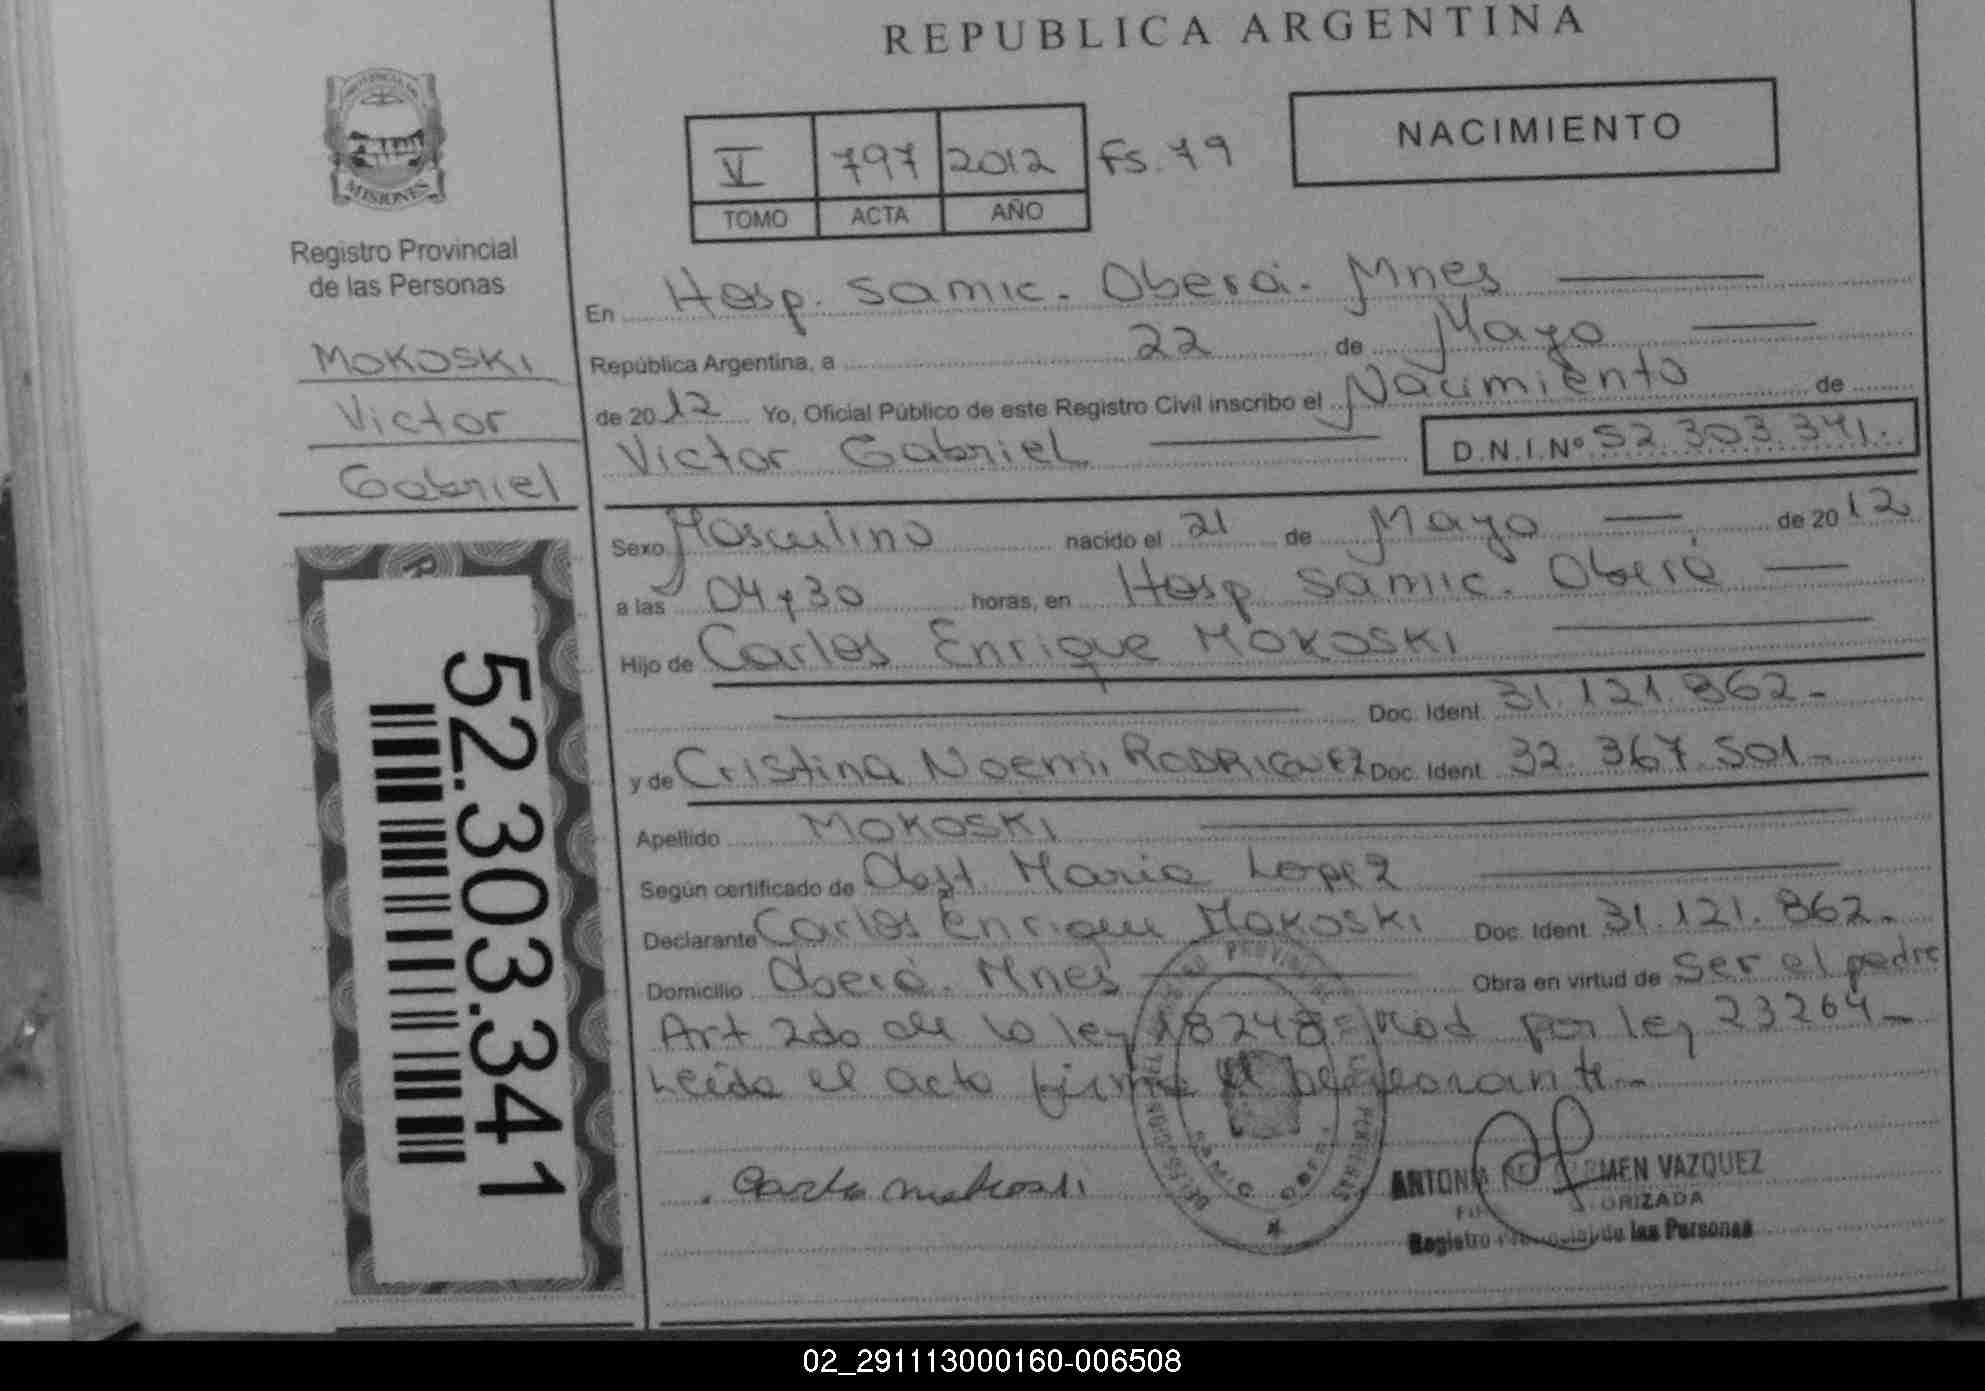 REPUBLICA ARGENTINA
PROVINCIA DE
MISIONES
Registro Provincial
de las Personas
MOKOSKI
Victor
Gabriel
52.303.341
V 797 2012 Fs. 79
TOMO ACTA AÑO
NACIMIENTO
En Hosp. Samic. Oberá. Mnes
República Argentina, a 22 de Mayo
de 2012 Yo, Oficial Público de este Registro Civil inscribo el Nacimiento de
Victor Gabriel D.N.I.Nº 52.303.341.
Sexo Masculino nacido el 21 de Mayo de 2012
a las 04 y 30 horas, en Hosp Samic. Oberá
Hijo de Carlos Enrique MOKOSKI
Doc. Ident. 31.121.862-
y de Cristina Noemi RODRIGUEZ Doc. Ident. 32.367.501-
Apellido MOKOSKI
Según certificado de Obst Maria Lopez
Declarante Carlos Enrique Mokoski Doc. Ident. 31.121.862-
Domicilio Oberá. Mnes Obra en virtud de Ser el padre
Art 2do de la ley 18248 Mod por ley 23264-
Leida el acta firma el declarante-
Carlos Mokoski
ANTONIA DEL CARMEN VAZQUEZ
ORIZADA
Registro Provincial de las Personas
02_291113000160-006508